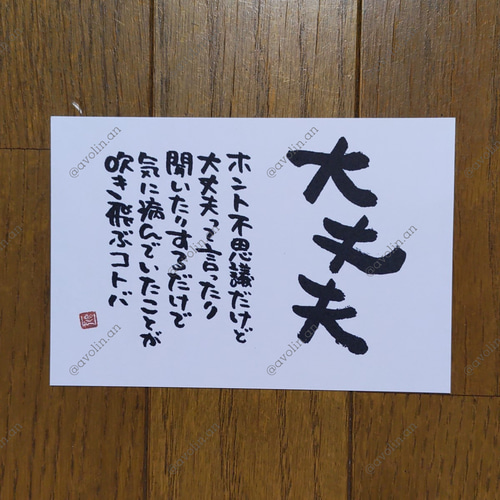 大丈夫
ホント不思議だけど
大丈夫って言ったり
聞いたりするだけで
気に病んでいたことが
吹き飛ぶコトバ
@avolin.an